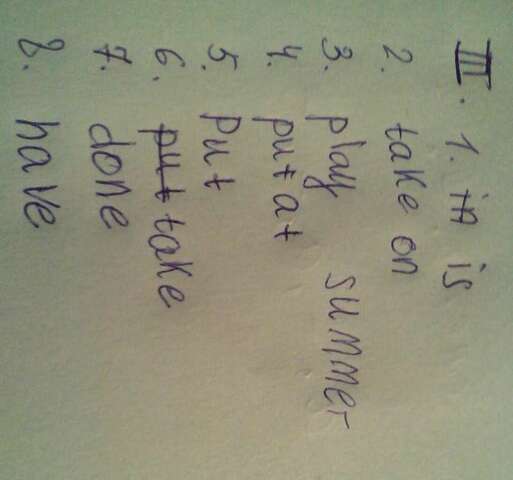 III. 1. in is
2. take on
3. play summer
4. put at
5. put
6. put take
7. done
8. have